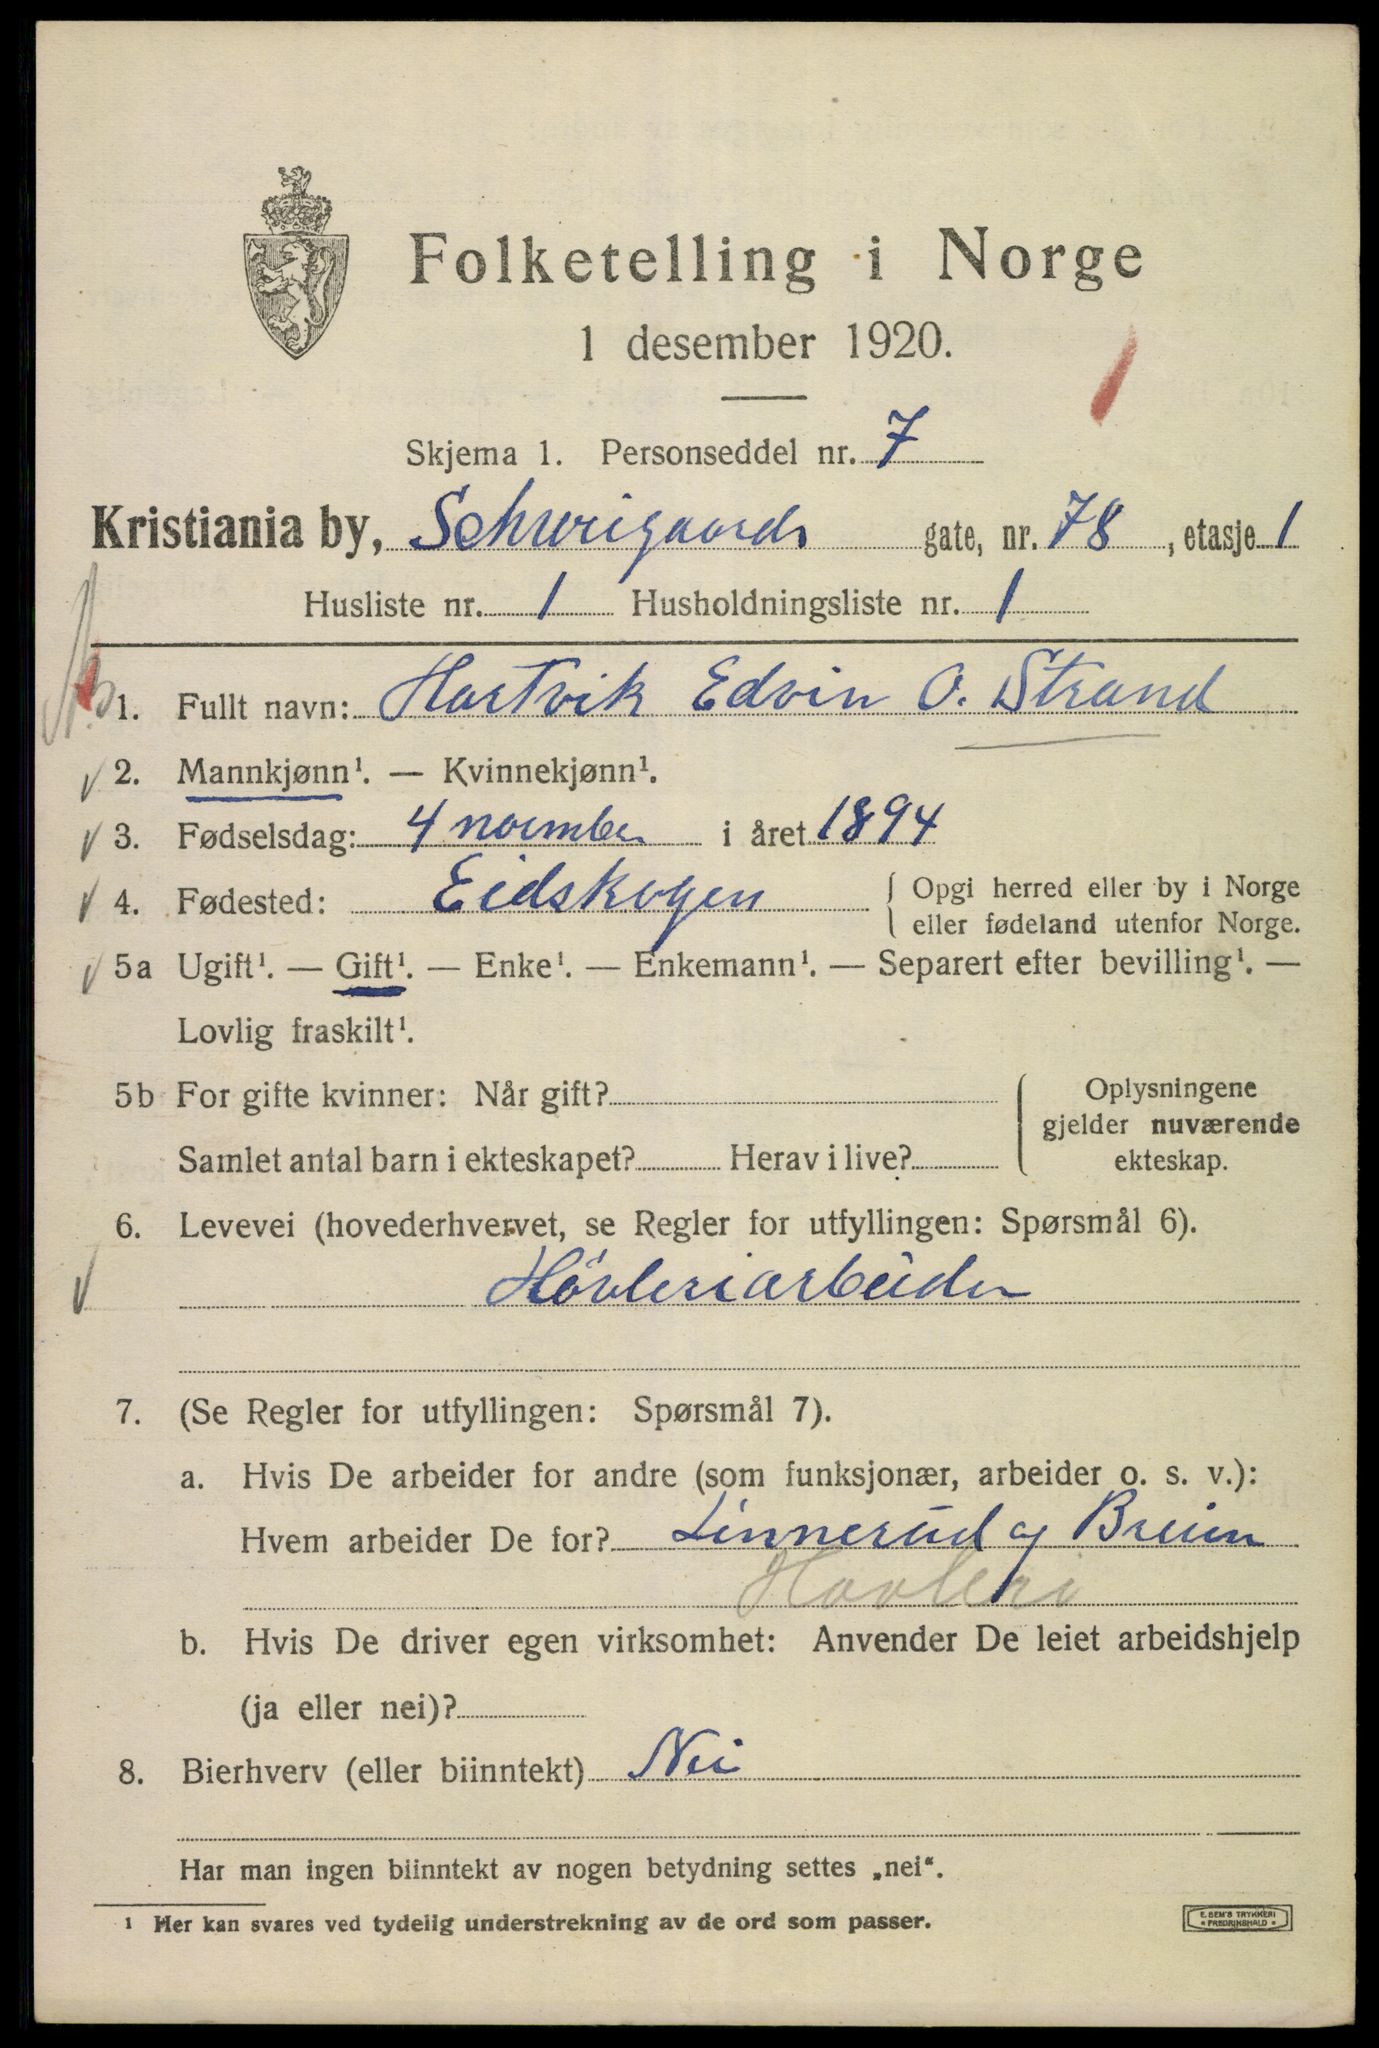 Folketelling i Norge
1 desember 1920.
Skjema 1. Personseddel nr. 7
Kristiania by, Schweigaards gate, nr. 78, etasje 1
Husliste nr. 1 Husholdningsliste nr. 1
1. Fullt navn: Hartvik Edvin O. Strand
2. Mannkjønn¹. — Kvinnekjønn¹.
3. Fødselsdag: 4 november i året 1894
4. Fødested: Eidskogen { Opgi herred eller by i Norge
eller fødeland utenfor Norge.
5a Ugift¹. — Gift¹. — Enke¹. — Enkemann¹. — Separert efter bevilling¹. —
Lovlig fraskilt¹.
5b For gifte kvinner: Når gift?
Samlet antal barn i ekteskapet? Herav i live?
Oplysningene
gjelder nuværende
ekteskap.
6. Levevei (hovederhvervet, se Regler for utfyllingen: Spørsmål 6).
Høvleriarbeider
7. (Se Regler for utfyllingen: Spørsmål 7).
a. Hvis De arbeider for andre (som funksjonær, arbeider o. s. v.):
Hvem arbeider De for? Linnerud og Breien
Høvleri
b. Hvis De driver egen virksomhet: Anvender De leiet arbeidshjelp
(ja eller nei)?
8. Bierhverv (eller biinntekt) Nei
Har man ingen biinntekt av nogen betydning settes „nei“.
¹ Her kan svares ved tydelig understrekning av de ord som passer.
E. SEM'S TRYKKERI
FREDRIKSHALD